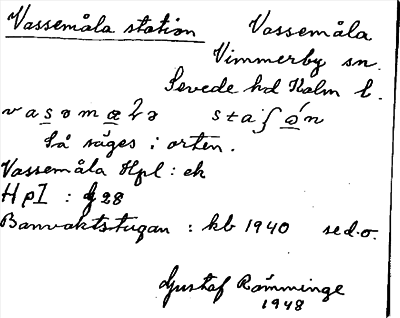 Vassemåla station Vassemåla
Vimmerby sn.
Sevede hd Kalm l.
vasəmæꝇə staʃɷ́n
Så säges i orten.
Vassemåla Hpl : ek
HpI : g 28
Banvaktstugan : kb 1940 se d.o.
Gustaf Ramminge
1948